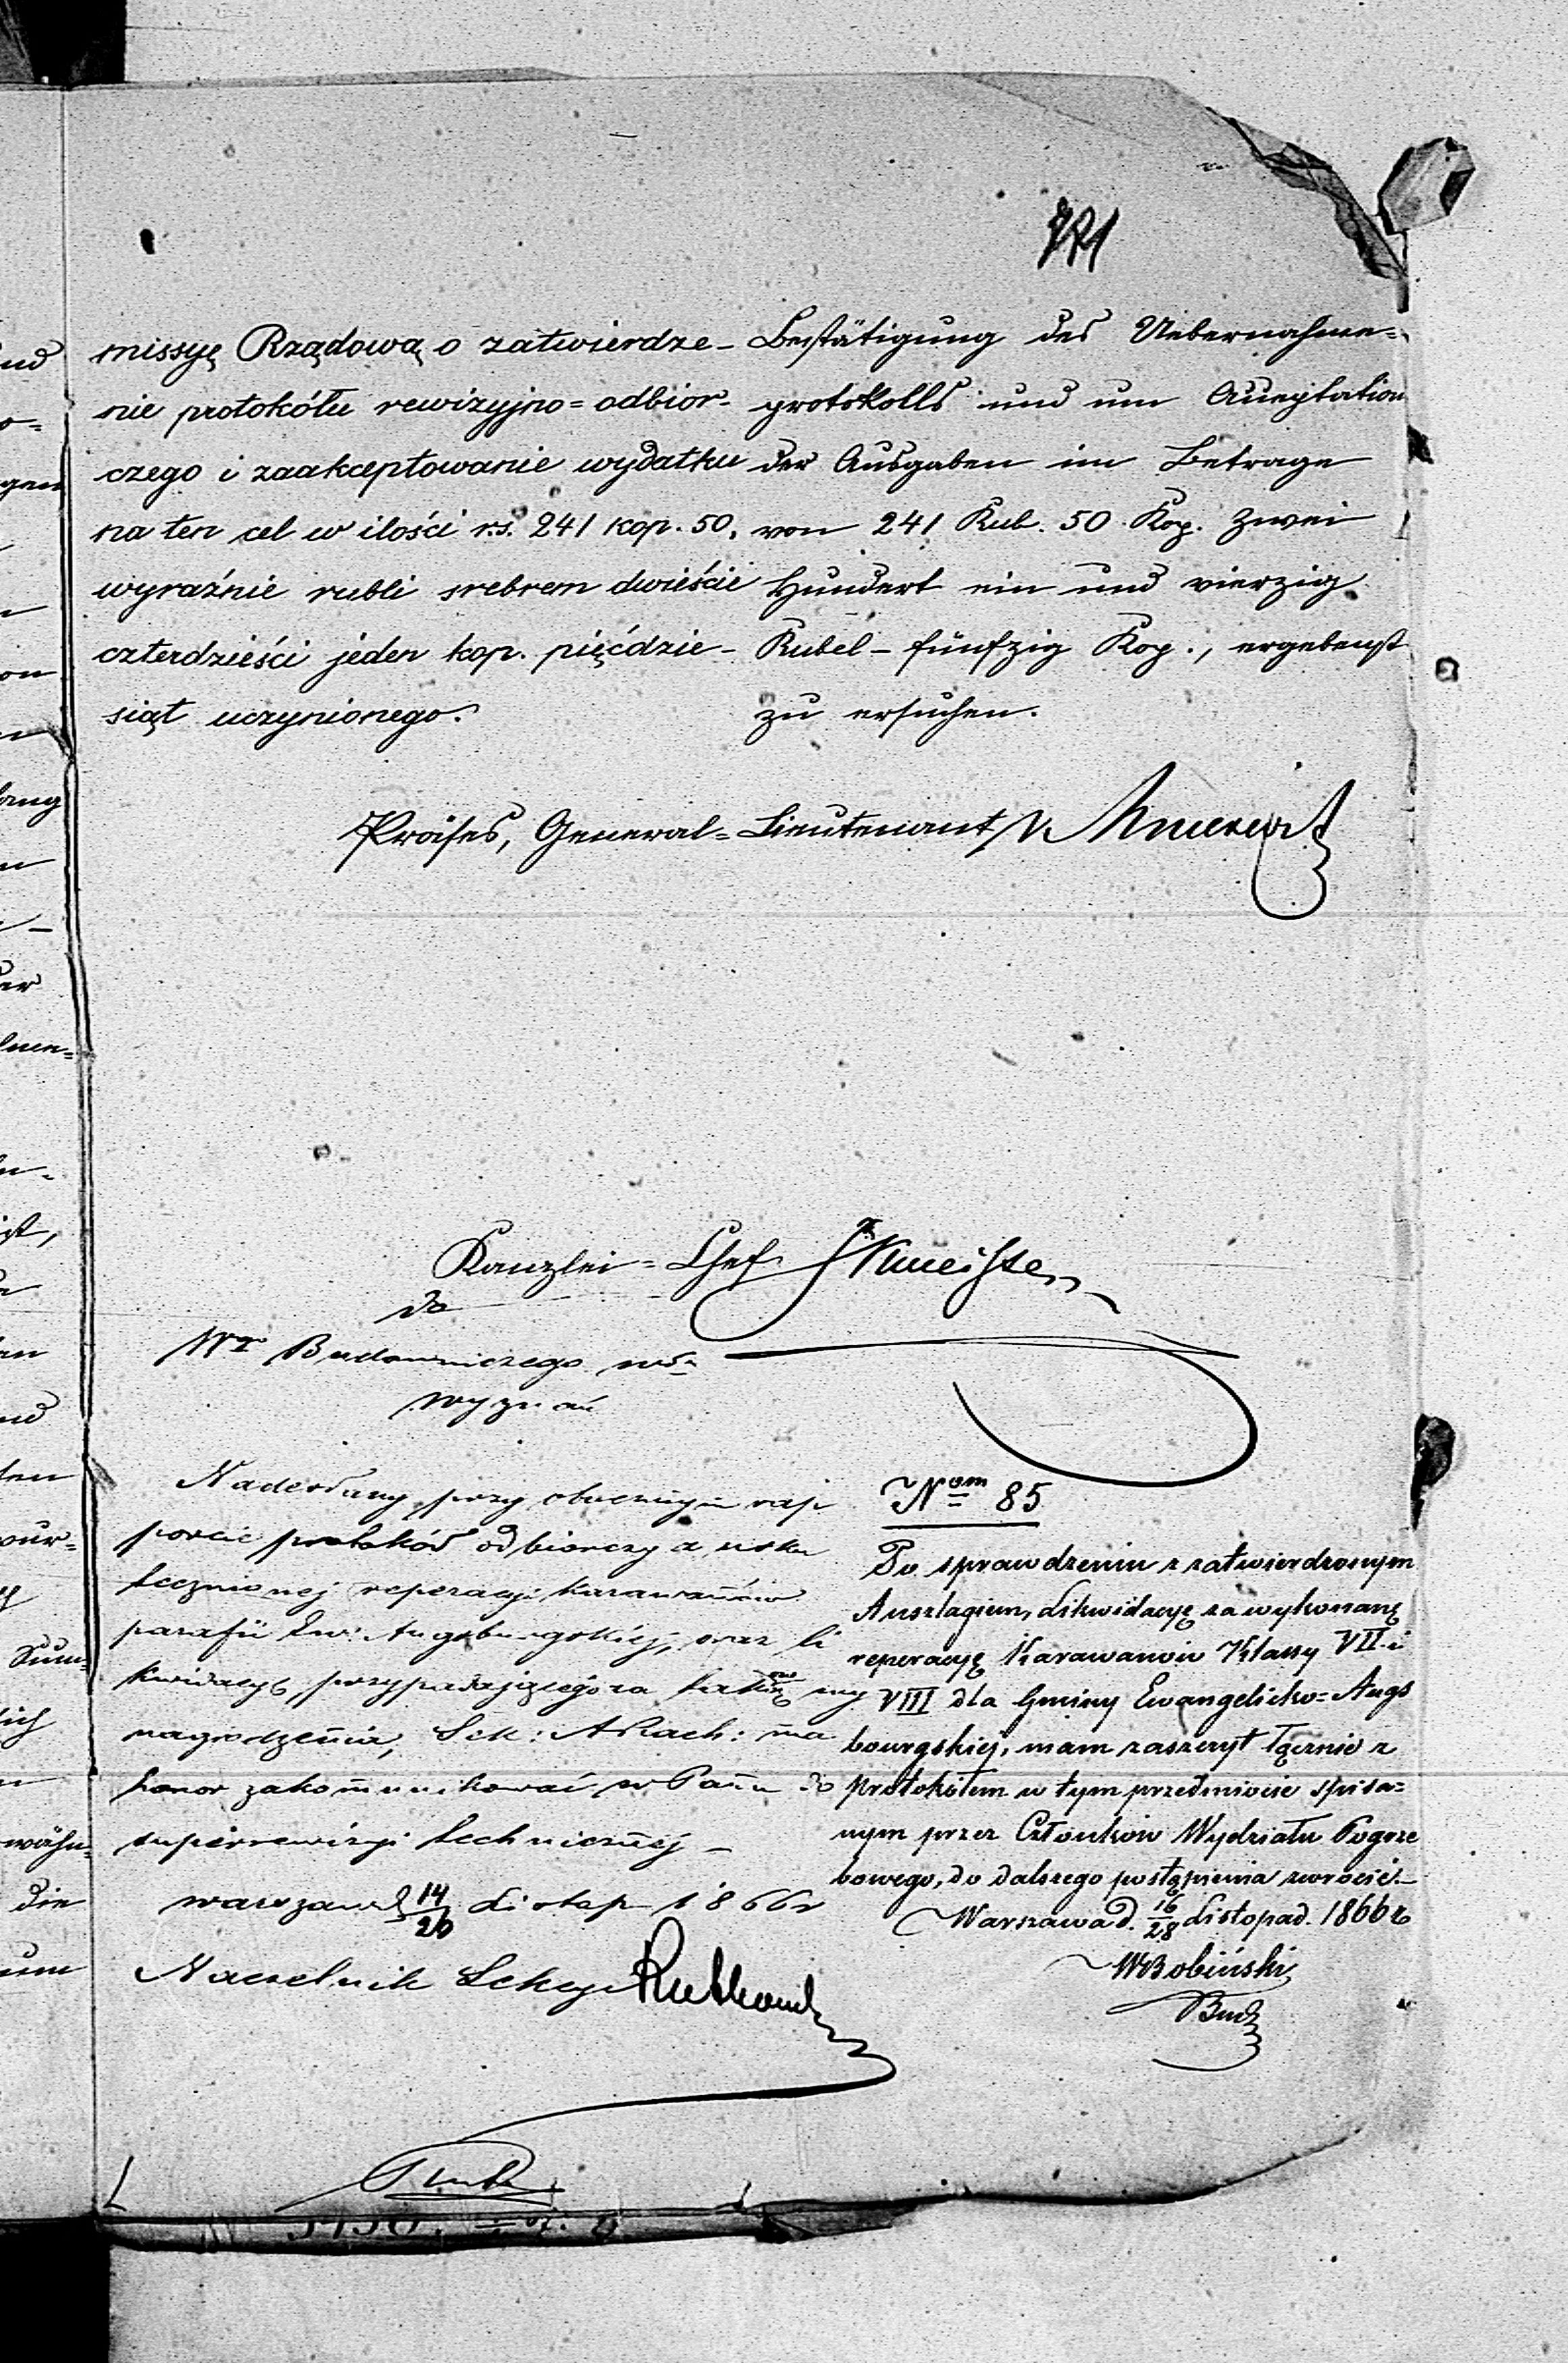 missyę Rządową o zatwierdze-
nie protokółu rewizyjno=odbior-
czego i zaakceptowanie wydatku
na ten cel w ilości r.s. 241 kop. 50,
wyraźnie rubli srebrem dwieście
czterdzieści jeden kop. pięćdzie-
siąt uczynionego.
Bestätigung des Uebernahme=
protokolls und um Acceptation
der Ausgaben im Betrage
von 241 Rub. 50 Kop. Zwei
Hundert ein und vierzig
Rubel – fünfzig Kop., ergebenst
zu ersuchen.
Präses, General=Lieutenant
Kanzlei=Chef
do
Budowniczego
wyznań
Nadesłany przy obecnym rap
porcie protokół odbiorczy z usku
tecznionej reperacji karawanów
parafii Ew: Augsburgskiej, oraz li
kwidacyę, przypadającego za takową wy
nagrodzenia, Sek: Rach: ma
honor zakomunikować W Panu do
superrewizyi technicznej –
Warszawa d 14/26 Listop 1866 r
Naczelnik Sekcyi
Nom 85
Po sprawdzeniu z zatwierdzonym
Anszlagiem, Likwidacyę za wykonaną
reperacyę Karawanów Klassy VII i
VIII dla Gminy Ewangelicko=Augs
bourgskiej, mam zaszczyt łącznie z
protokółem w tym przedmiocie spisa=
nym przez Członków Wydziału Pogrze
bowego, do dalszego postąpienia zwrócić.–
Warszawa d. 16/28 Listopad. 1866 r.
WBobiński
Bud